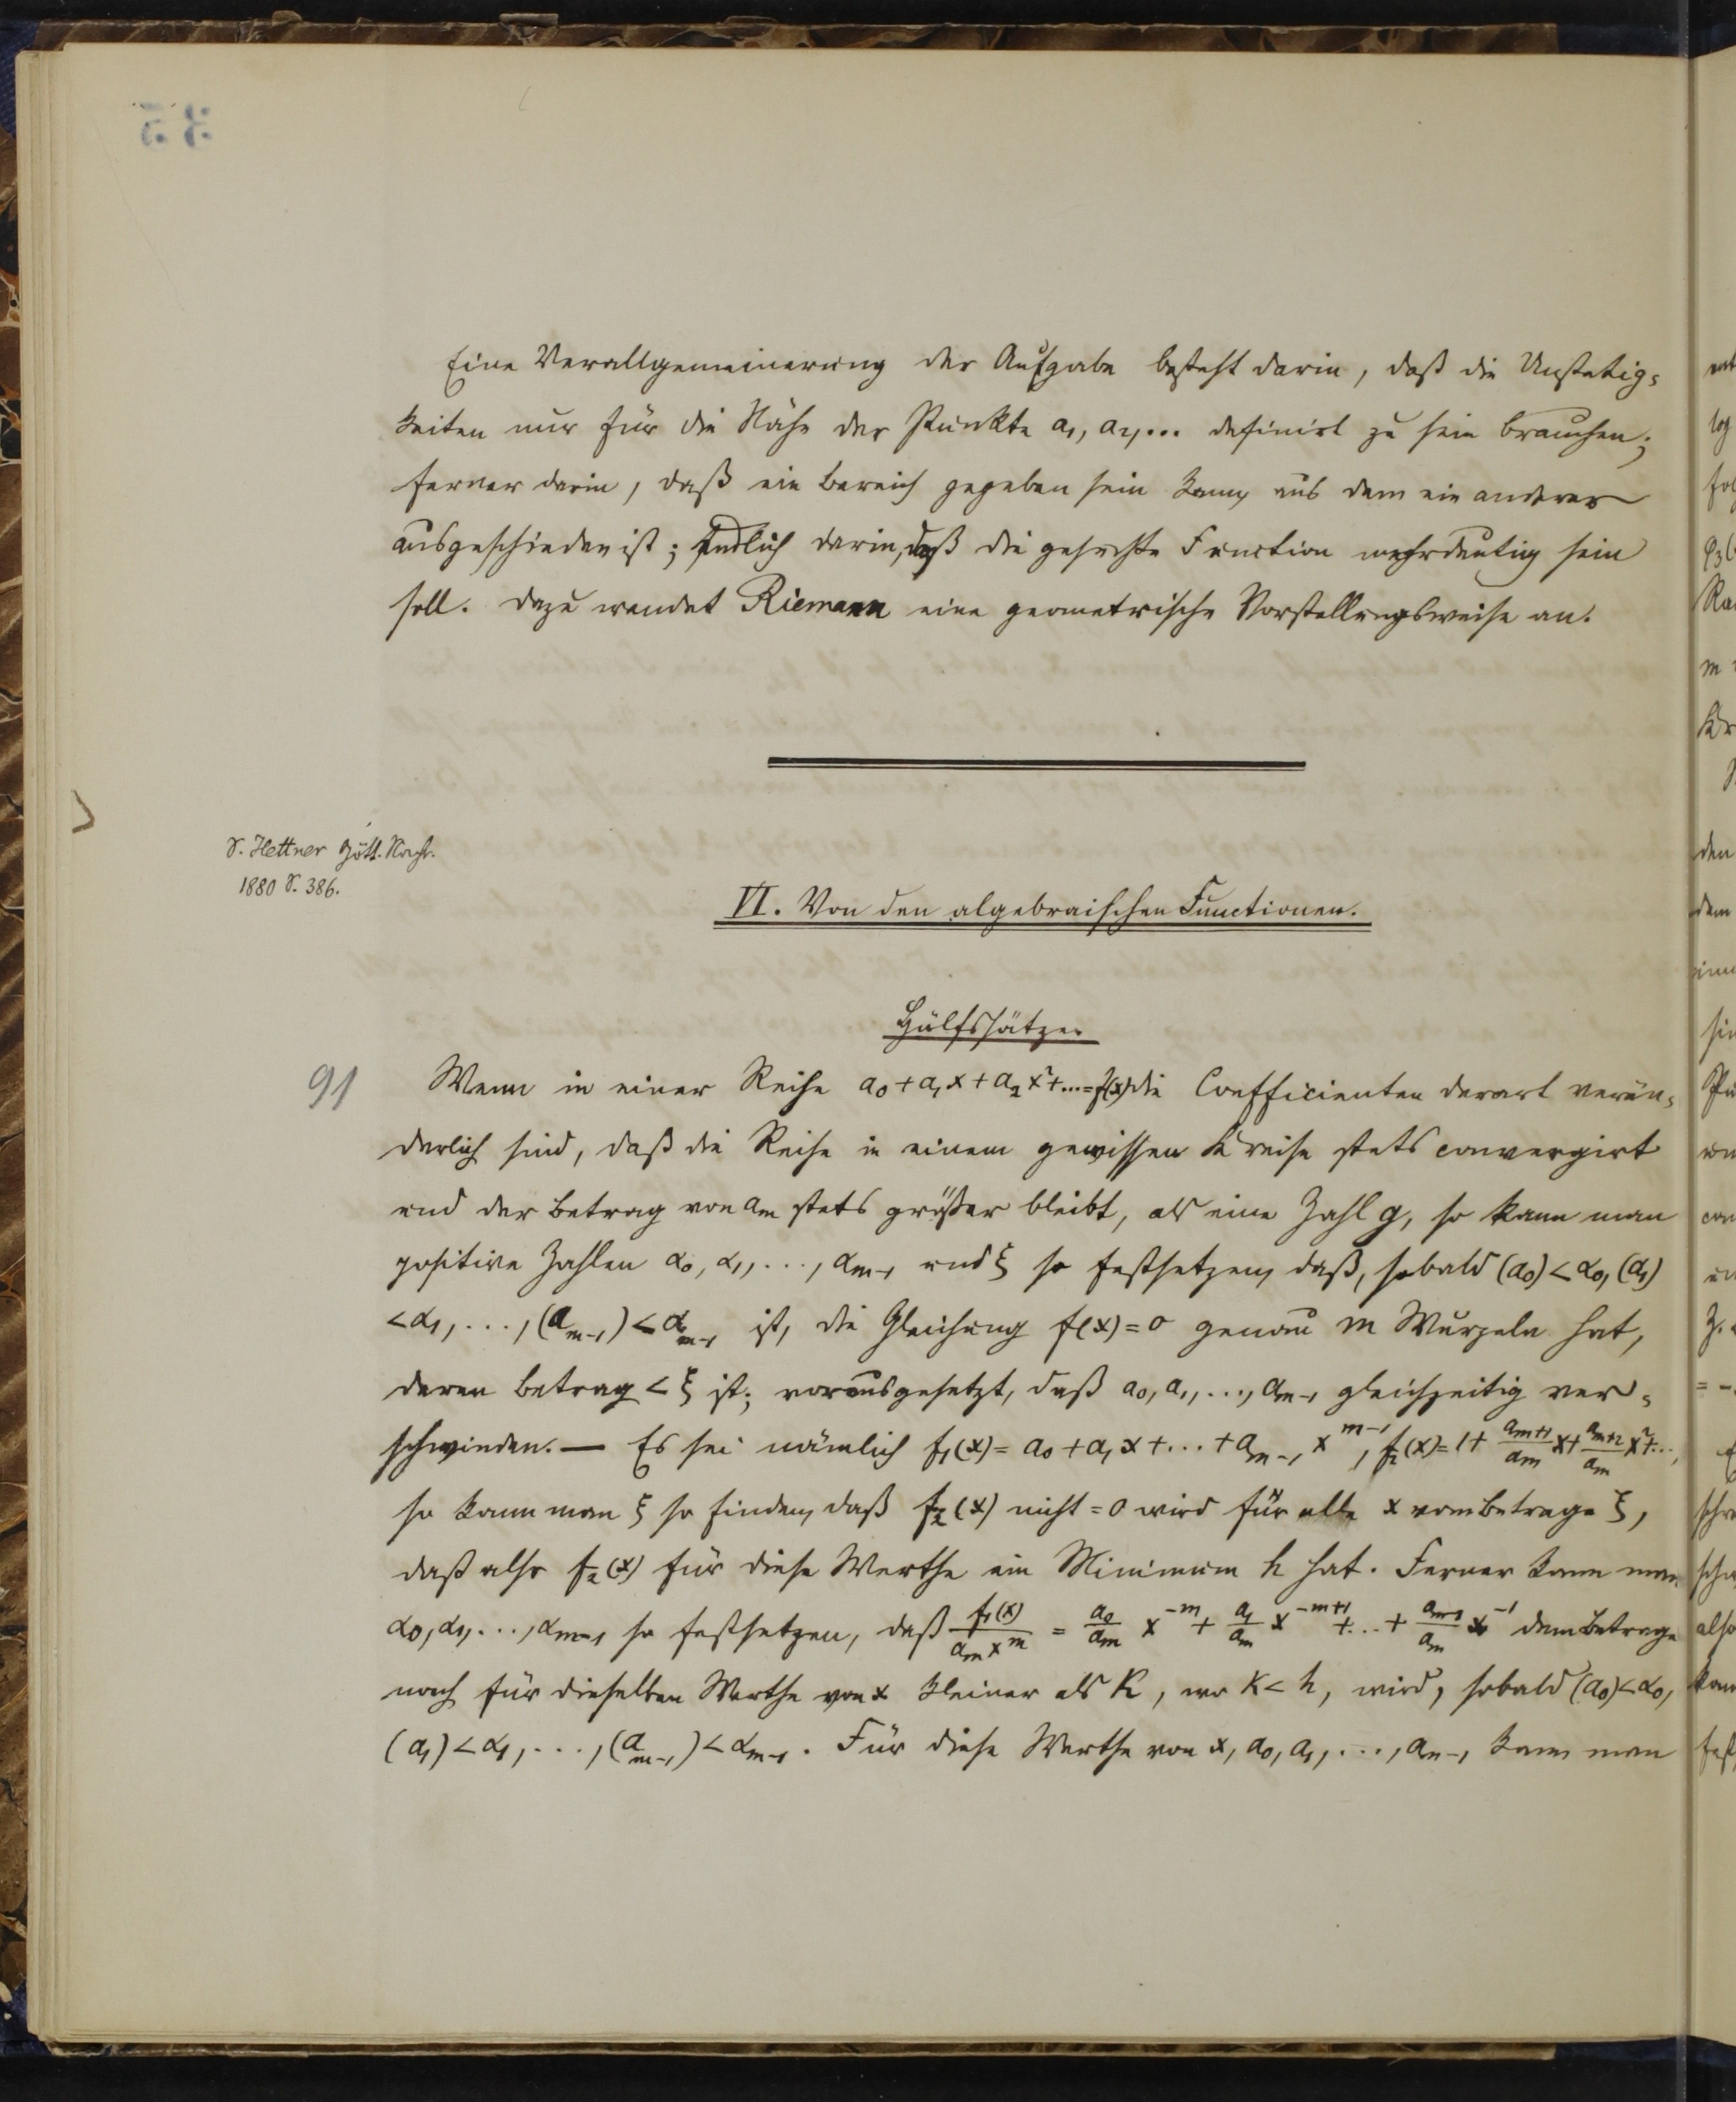 Eine Verallgemeinerung der Aufgabe besteht darin, daß die Unstetig-
keiten nur für die Nähe der Punkte a₁, a₂,... definirt zu sein brauchen;
ferner darin, daß ein Bereich gegeben sein kann, aus dem ein anderer
ausgeschieden ist; endlich darin, daß die gesuchte Function mehrdeutig sein
soll. Dazu wendet Riemann eine geometrische Vorstellungsweise an.
S. Hettner Gött. Nachr.
1880 S. 386.
VI. Von den algebraischen Functionen.
Hülfssätze.
91
Wenn in einer Reihe a₀ + a₁x + a₂x² + ... = f(x) die Coefficienten derart verän-
derlich sind, daß die Reihe in einem gewissen Kreise stets convergirt
und der Betrag von aₘ stets größer bleibt, als eine Zahl g, so kann man
positive Zahlen α₀, α₁, ..., αₘ₋₁ und ξ so festsetzen, daß, sobald (a₀) < α₀, (a₁)
< α₁, ..., (aₘ₋₁) < αₘ₋₁ ist, die Gleichung f(x) = 0 genau m Wurzeln hat,
deren Betrag < ξ ist; vorausgesetzt, daß a₀, a₁, ..., aₘ₋₁ gleichzeitig ver-
schwinden. — Es sei nämlich f₁(x) = a₀ + a₁x + ... + aₘ₋₁xᵐ⁻¹, f₂(x) = 1 + aₘ₊₁/aₘ x + aₘ₊₂/aₘ x² + ...,
so kann man ξ so finden, daß f₂(x) nicht = 0 wird für alle x vom Betrage ξ,
daß also f₂(x) für diese Werthe ein Minimum h hat. Ferner kann man
α₀, α₁, ..., αₘ₋₁ so festsetzen, daß f₁(x)/aₘxᵐ = a₀/aₘ x⁻ᵐ + a₁/aₘ x⁻ᵐ⁺¹ + ... + aₘ₋₁/aₘ x⁻¹ dem Betrage
nach für dieselben Werthe von x kleiner als k, wo k < h, wird, sobald (a₀) < α₀,
(a₁) < α₁, ..., (aₘ₋₁) < αₘ₋₁. Für diese Werthe von x, a₀, a₁, ..., aₘ₋₁ kann man